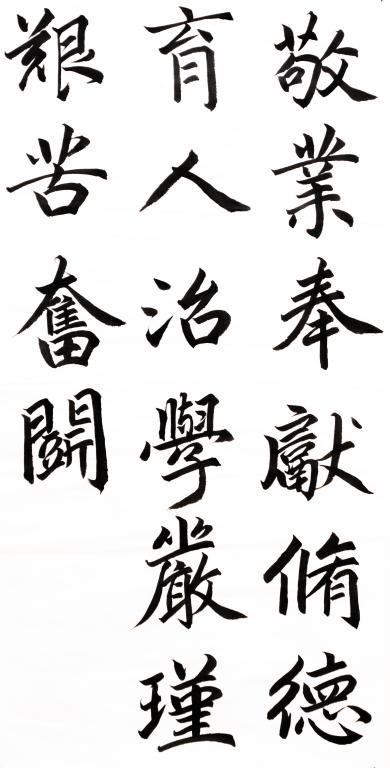 敬業奉獻脩德
育人治學嚴瑾
艱苦奮鬪